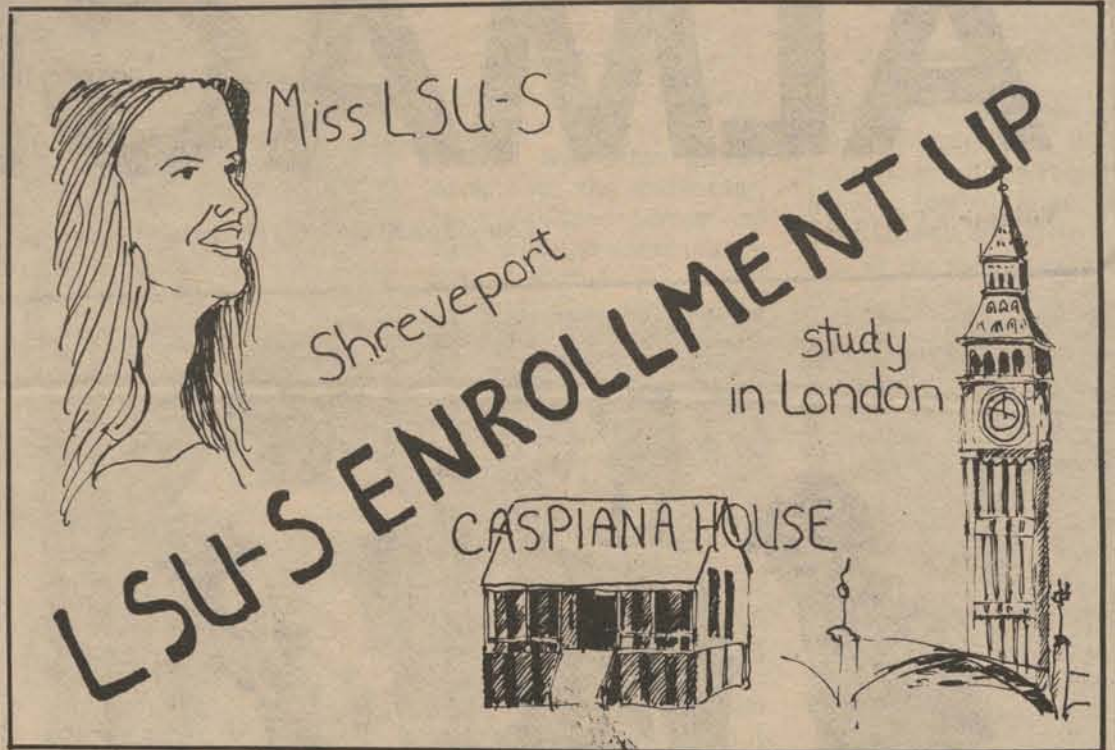 Miss LSU-S
Shreveport
LSU-S ENROLLMENT UP
study
in London
CASPIANA HOUSE